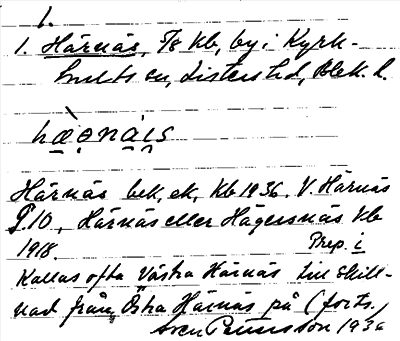 1.
1. Härnäs, 7/8 kb, by i Kyrk-
hults sn, Listers hd, Blek. l.
hæ̀ǝnais
Härnäs bek, ek, Kb 1936. V. Härnäs
J.10, Härnäs eller Hägersnäs kb
1918. Prep. i
Kallas ofta Västra Härnäs till skill-
nad från Östra Härnäs på (forts.)
Sven 1936